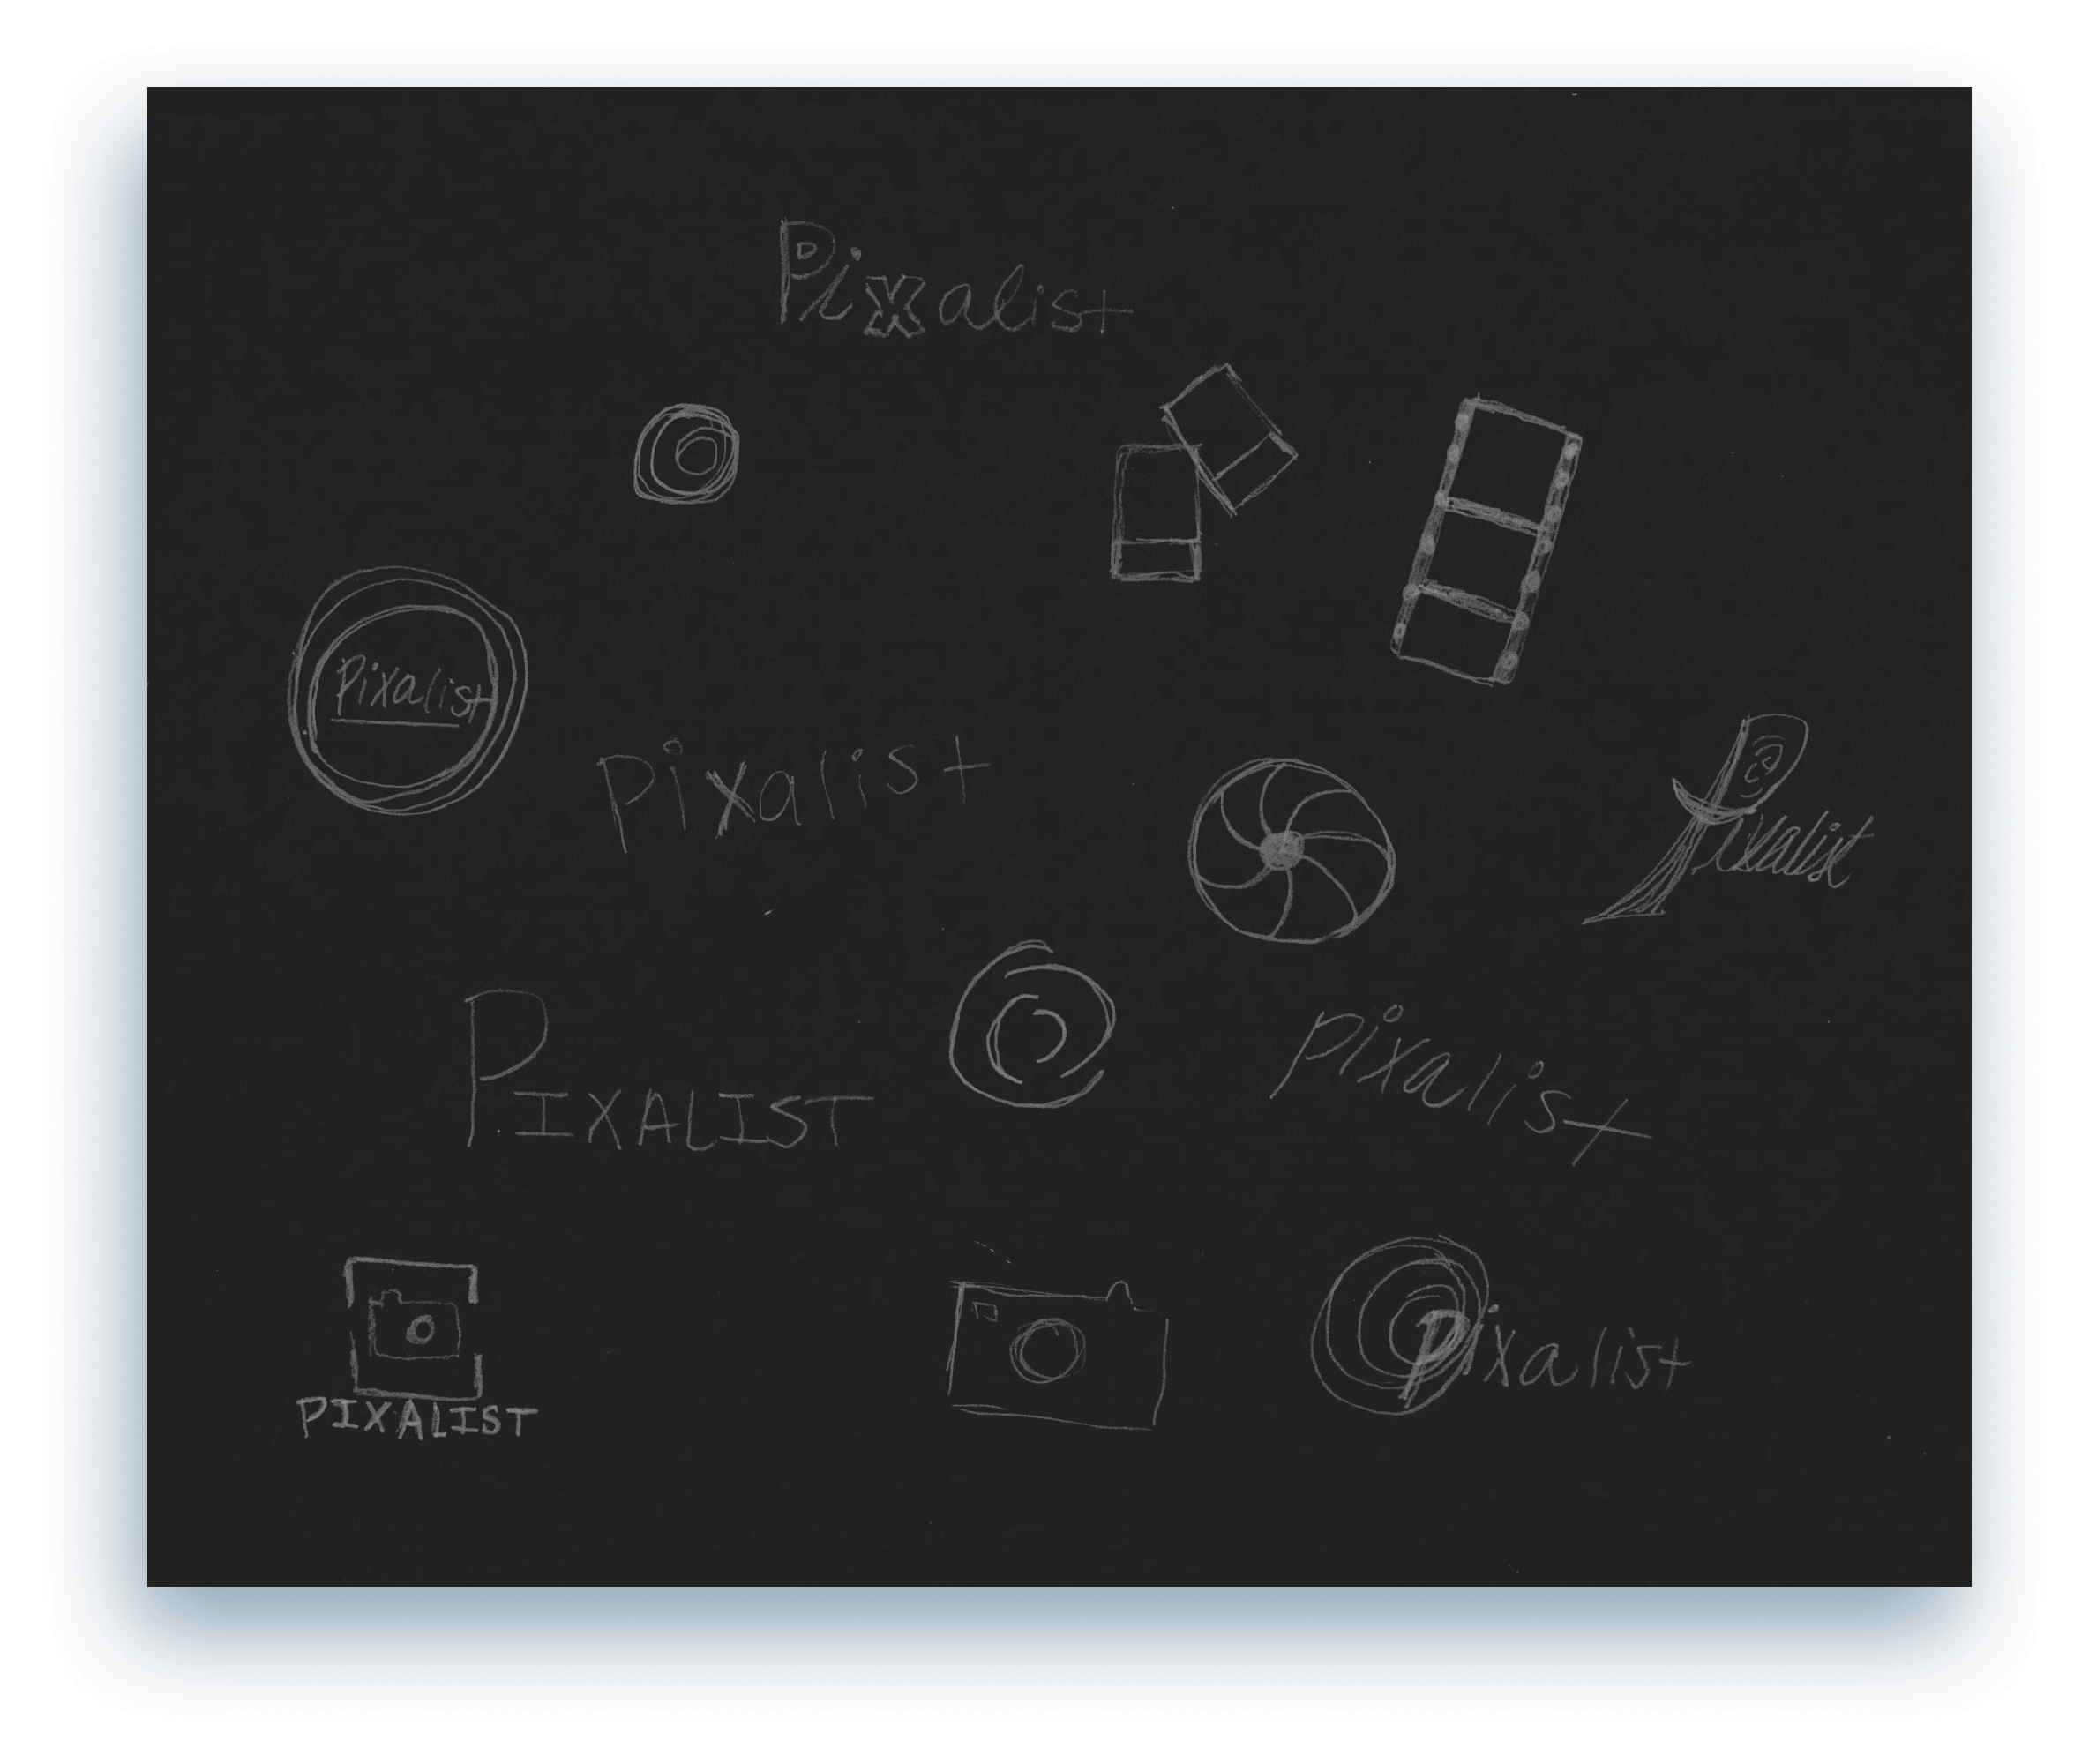 Pixalist
Pixalist
Pixalist
Pixalist
PIXALIST
Pixalist
Pixalist
PIXALIST